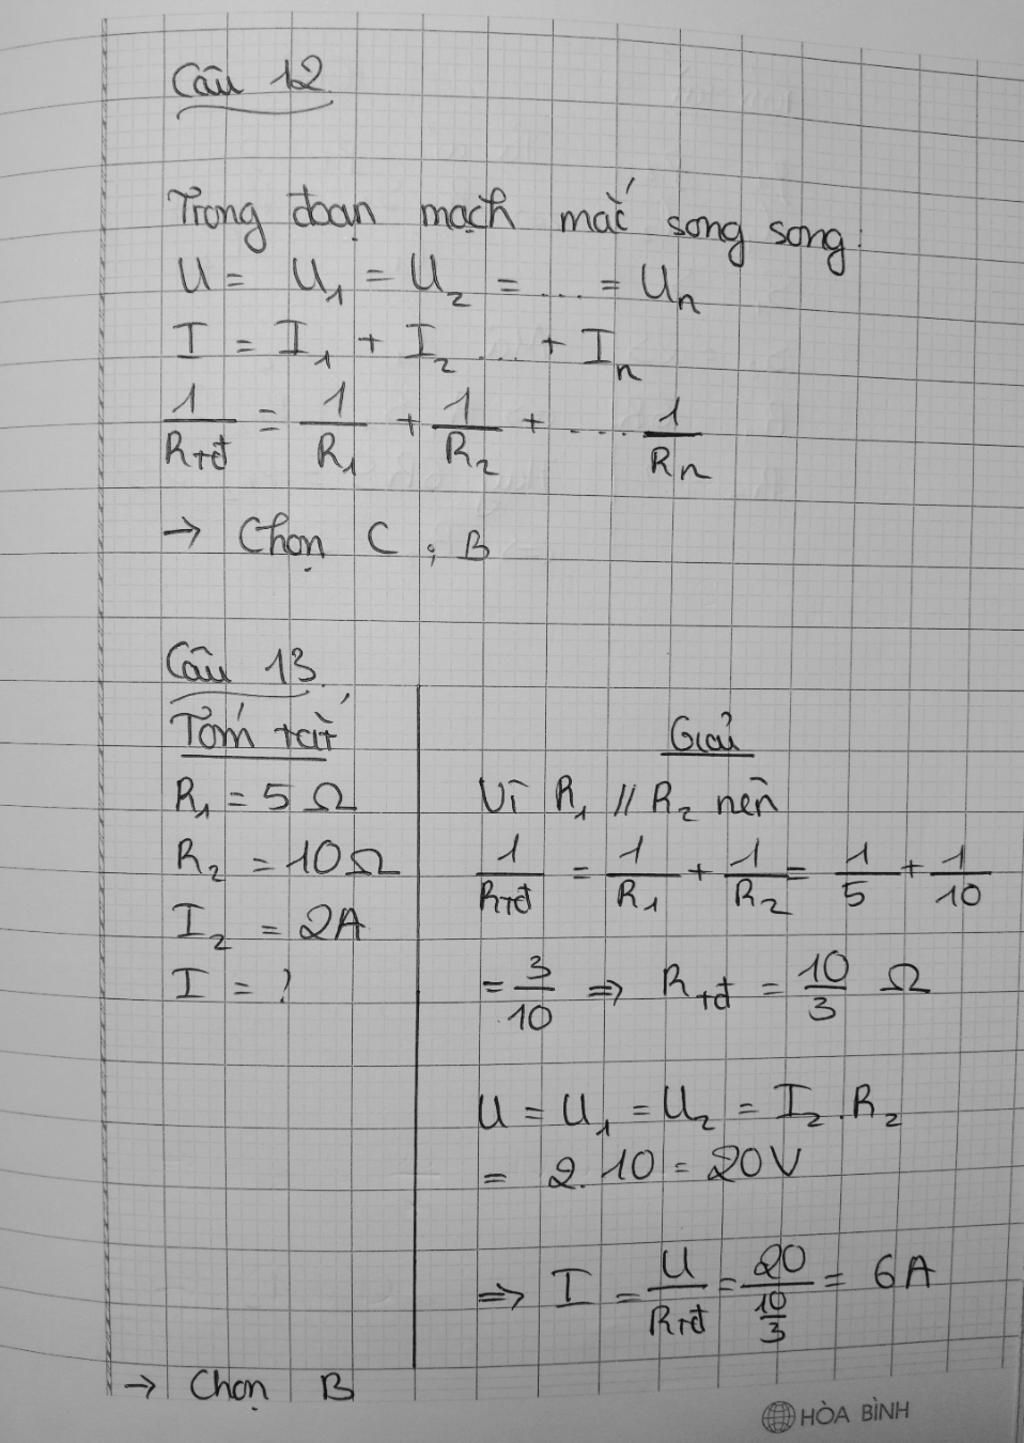 Câu 12
Trong đoạn mạch mắc song song:
U = U₁ = U₂ = ... = Uₙ
I = I₁ + I₂ ... + Iₙ
1/Rtđ = 1/R₁ + 1/R₂ + ... 1/Rₙ
→ Chọn C, B
Câu 13.
Tóm tắt
R₁ = 5 Ω
R₂ = 10 Ω
I₂ = 2A
I = ?
Giải
Vì R₁ // R₂ nên
1/Rtđ = 1/R₁ + 1/R₂ = 1/5 + 1/10
= 3/10 => Rtđ = 10/3 Ω
U = U₁ = U₂ = I₂ . R₂
= 2.10 = 20V
=> I = U/Rtđ = 20/(10/3) = 6A
→ Chọn B
HÒA BÌNH